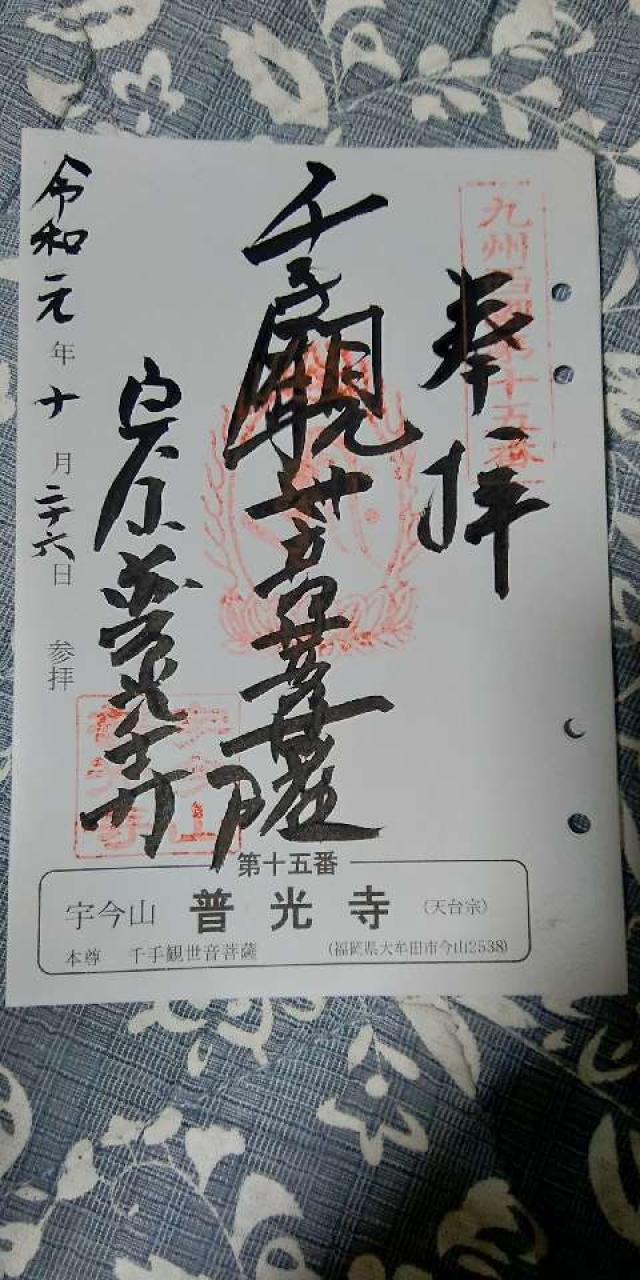 九州西国第十五番
奉拝
千手観世音菩薩
普光寺
令和元年十月二十六日 参拝
第十五番
宇今山 普光寺 (天台宗)
本尊 千手観世音菩薩 (福岡県大牟田市今山2538)